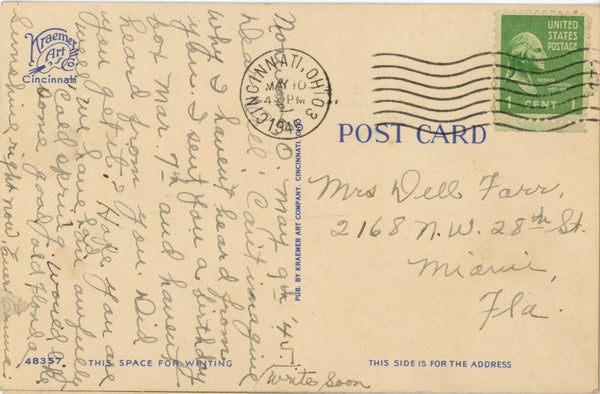 Kraemer
Art Co.
Cincinnati
CINCINNATI, OHIO 3
MAY 10
PM
UNITED
STATES
POSTAGE
1 CENT 1
O. May 9th '45.
Dell: Can't imagine
why I haven't heard from
you. I sent you a birthday
Mar. 7th and haven't
heard from you. Did
you get it? Hope you are
well. We have had awfully
Cold spring, would like
some good old Florida
Sunshine right now,
Write soon
PUB. BY KRAEMER ART COMPANY, CINCINNATI, OHIO
POST CARD
Mrs Dell Farr,
2168 N.W. 28th St.
Miami,
Fla.
48357
THIS SPACE FOR WRITING
THIS SIDE IS FOR THE ADDRESS